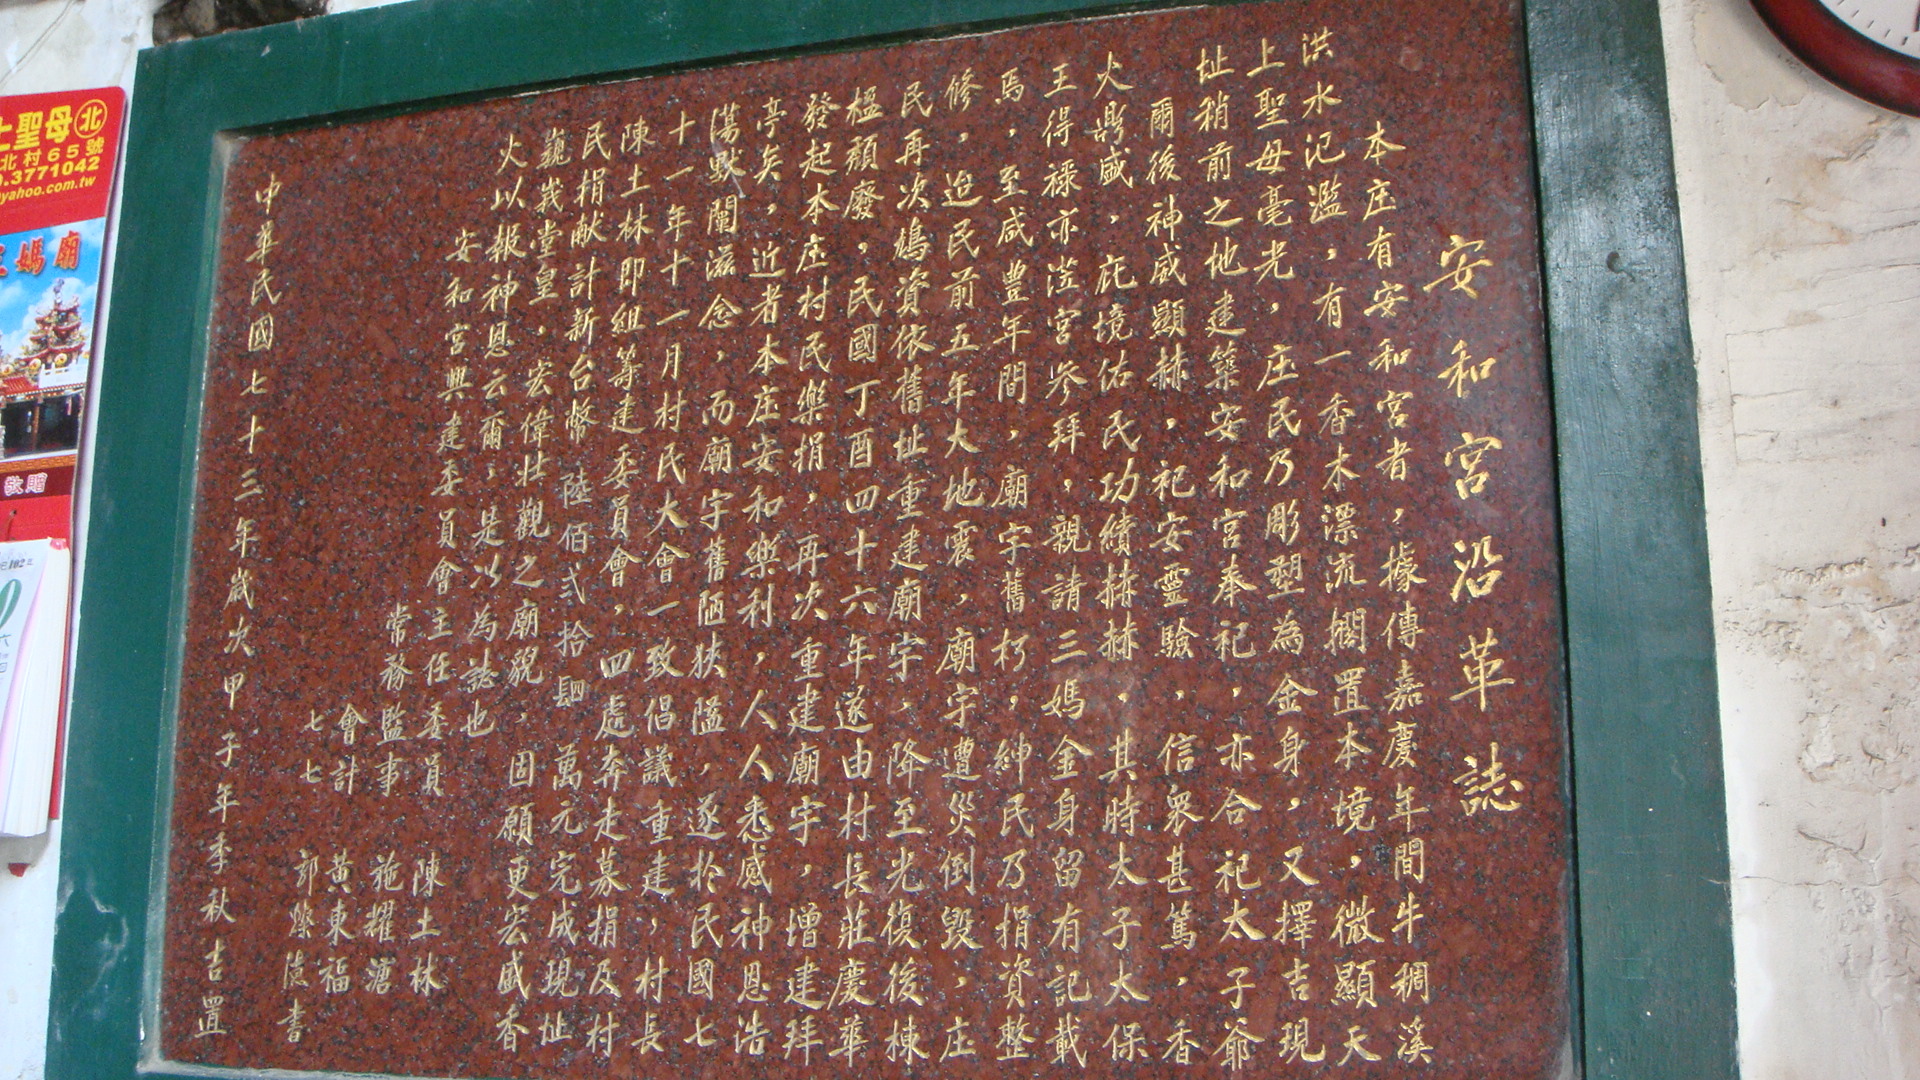 安和宮沿革誌
本庄有安和宮者，據傳嘉慶年間牛稠溪
洪水氾濫，有一香木漂流擱置本境，微顯天
上聖母毫光，庄民乃彫塑為金身，又擇吉現
址稍前之地建築安和宮奉祀，亦合祀太子爺
爾後神威顯赫，祀安靈驗，信衆甚篤，香
火鼎盛，庇境佑民功績赫赫，其時太子太保
王得祿亦涖宮參拜，親請三媽金身留有記載
焉，至咸豊年間，廟宇舊朽，紳民乃捐資整
修，迨民前五年大地震，廟宇遭災倒毀，庄
民再次鳩資依舊址重建廟宇，降至光復後棟
楹頹廢，民國丁酉四十六年遂由村長莊慶華
發起本庄村民樂捐，再次重建廟宇，增建拜
亭矣，近者本庄安和樂利，人人悉感神恩浩
蕩默闡滋念，而廟宇舊陋狹隘，遂於民國七
十一年十一月村民大會一致倡議重建，村長
陳土林即組籌建委員會，四處奔走募捐及村
民捐献計新台幣陸佰弍拾肆萬元完成現址
巍峩堂皇，宏偉壮觀之廟貌，固願更宏盛香
火以報神恩云爾，是以為誌也
安和宮興建委員會主任委員 陳土林
常務監事 施耀溏
會計 黃東福
七七 郭燦憲書
中華民國七十三年歲次甲子年季秋吉置
上聖母 北
北村65號
.3771042
yahoo.com.tw
媽廟
敬贈